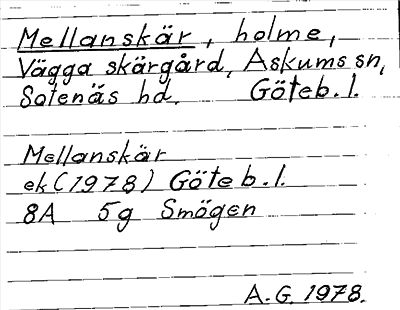 Mellanskär, holme,
Vägga skärgård, Askums sn,
Sotenäs hd. Göteb. l.
Mellanskär
ek (1978) Göteb. l.
8A 5g Smögen
A. G. 1978.